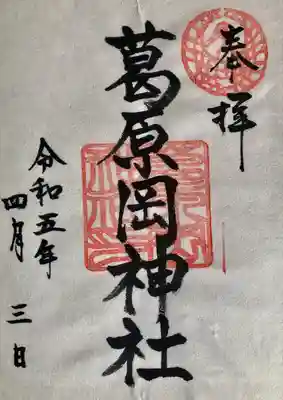 奉拝
葛原岡神社
令和五年
四月 三日